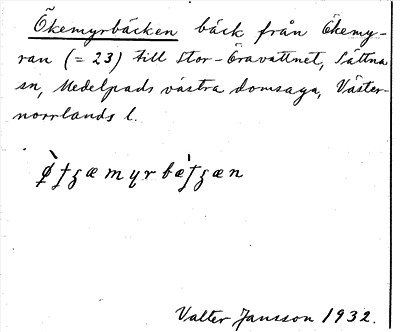 Ökemyrbäcken bäck från Ökemy-
ran (= 23) till Stor-Öravattnet, Sättna
sn, Medelpads västra domsaga, Väster-
norrlands l.
ø̀ƒʒæmyrbæ̀ƒʒæn
Valter Jansson 1932.